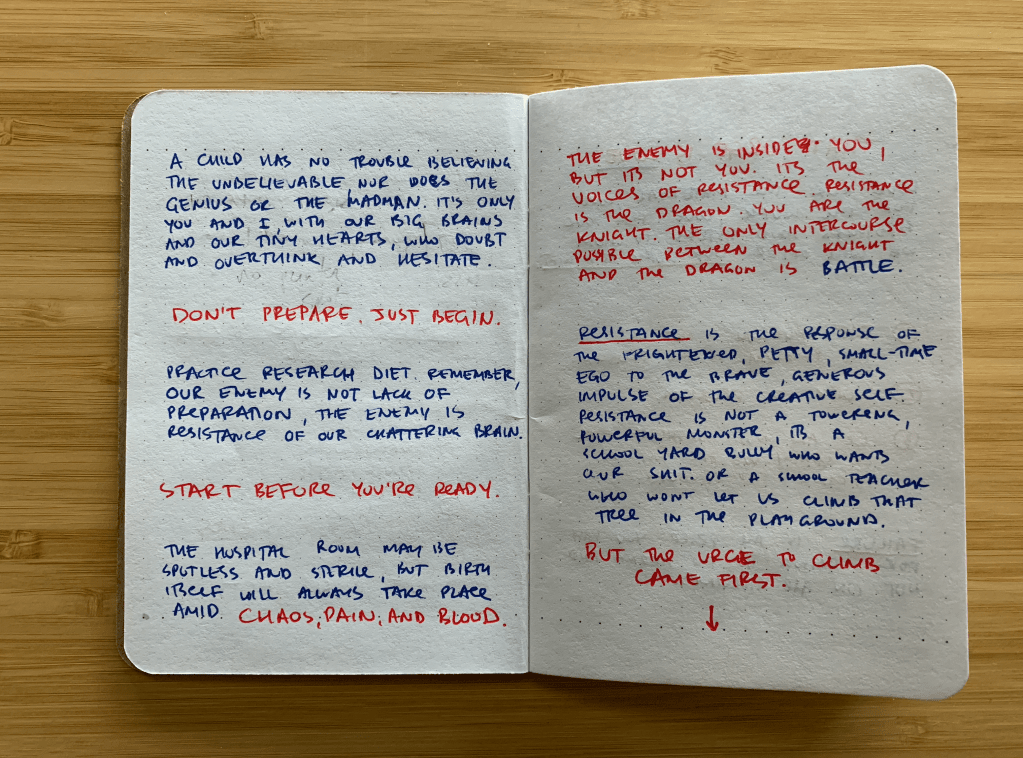 A CHILD HAS NO TROUBLE BELIEVING
THE UNBELIEVABLE, NOR DOES THE
GENIUS OR THE MADMAN. IT'S ONLY
YOU AND I, WITH OUR BIG BRAINS
AND OUR TINY HEARTS, WHO DOUBT
AND OVERTHINK AND HESITATE.
DON'T PREPARE. JUST BEGIN.
PRACTICE RESEARCH DIET. REMEMBER,
OUR ENEMY IS NOT LACK OF
PREPARATION, THE ENEMY IS
RESISTANCE OF OUR CHATTERING BRAIN.
START BEFORE YOU'RE READY.
THE HOSPITAL ROOM MAY BE
SPOTLESS AND STERILE, BUT BIRTH
ITSELF WILL ALWAYS TAKE PLACE
AMID CHAOS, PAIN, AND BLOOD.
THE ENEMY IS INSIDE YOU,
BUT ITS NOT YOU. ITS THE
VOICES OF RESISTANCE. RESISTANCE
IS THE DRAGON. YOU ARE THE
KNIGHT. THE ONLY INTERCOURSE
POSIBLE BETWEEN THE KNIGHT
AND THE DRAGON IS BATTLE.
RESISTANCE IS THE RESPONSE OF
THE FRIGHTENED, PETTY, SMALL-TIME
EGO TO THE BRAVE, GENEROUS
IMPULSE OF THE CREATIVE SELF.
RESISTANCE IS NOT A TOWERING,
POWERFUL MONSTER, ITS A
SCHOOL YARD BULLY WHO WANTS
OUR SHIT. OR A SCHOOL TEACHER
WHO WONT LET US CLIMB THAT
TREE IN THE PLAYGROUND.
BUT THE URGE TO CLIMB
CAME FIRST.